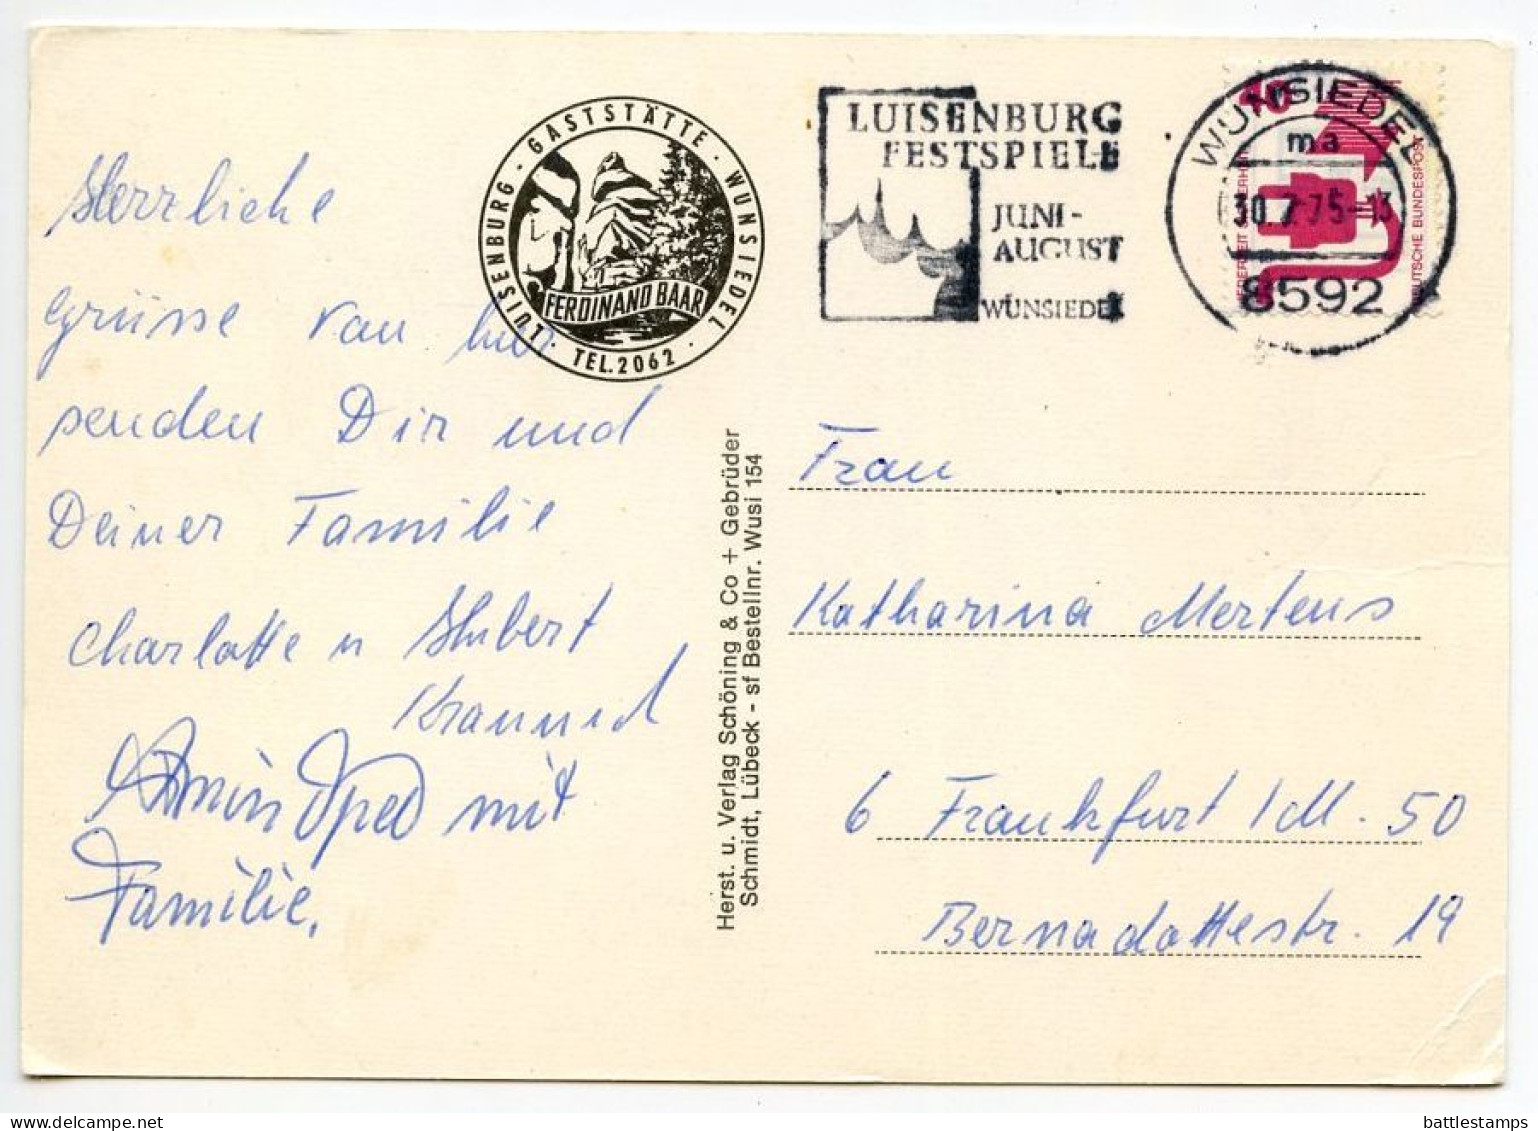 Herrliche
Grüsse von hier
senden Dir und
Deiner Familie
Charlotte u Hubert
mit
Familie.
LUISENBURG · GASTSTÄTTE · WUNSIEDEL ·
FERDINAND BAAR
TEL. 2062
Herst. u. Verlag Schöning & Co + Gebrüder
Schmidt, Lübeck - sf Bestellnr. Wusi 154
LUISENBURG
FESTSPIELE
JUNI-
AUGUST
WUNSIEDEL
WUNSIEDEL
ma
30.7.75-13
8592
DEUTSCHE BUNDESPOST
Frau
Katharina Mertens
6 Frankfurt / M. 50
Bernadottestr. 19
battlestamps